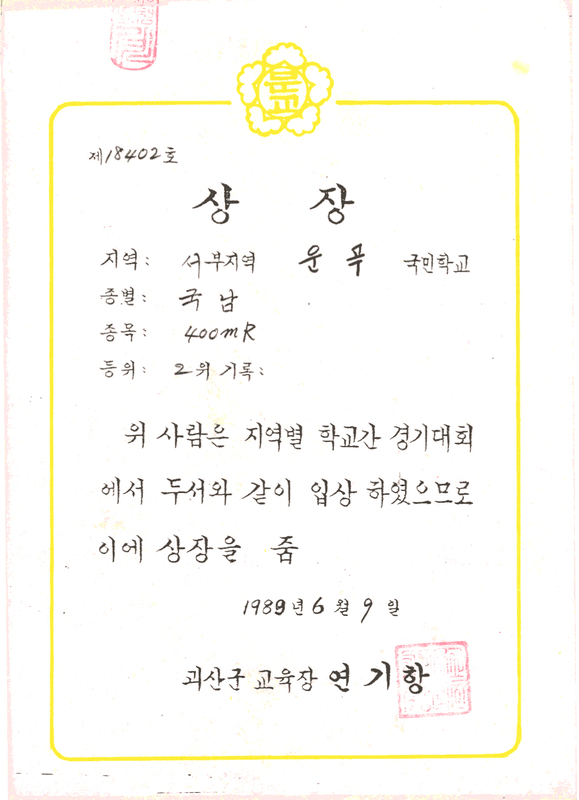 제18402호
상 장
지역: 서부지역 운곡 국민학교
종별: 국남
종목: 400mR
등위: 2위 기록:
위 사람은 지역별 학교간 경기대회
에서 두서와 같이 입상 하였으므로
이에 상장을 줌
1989년 6월 9일
괴산군 교육장 연기항